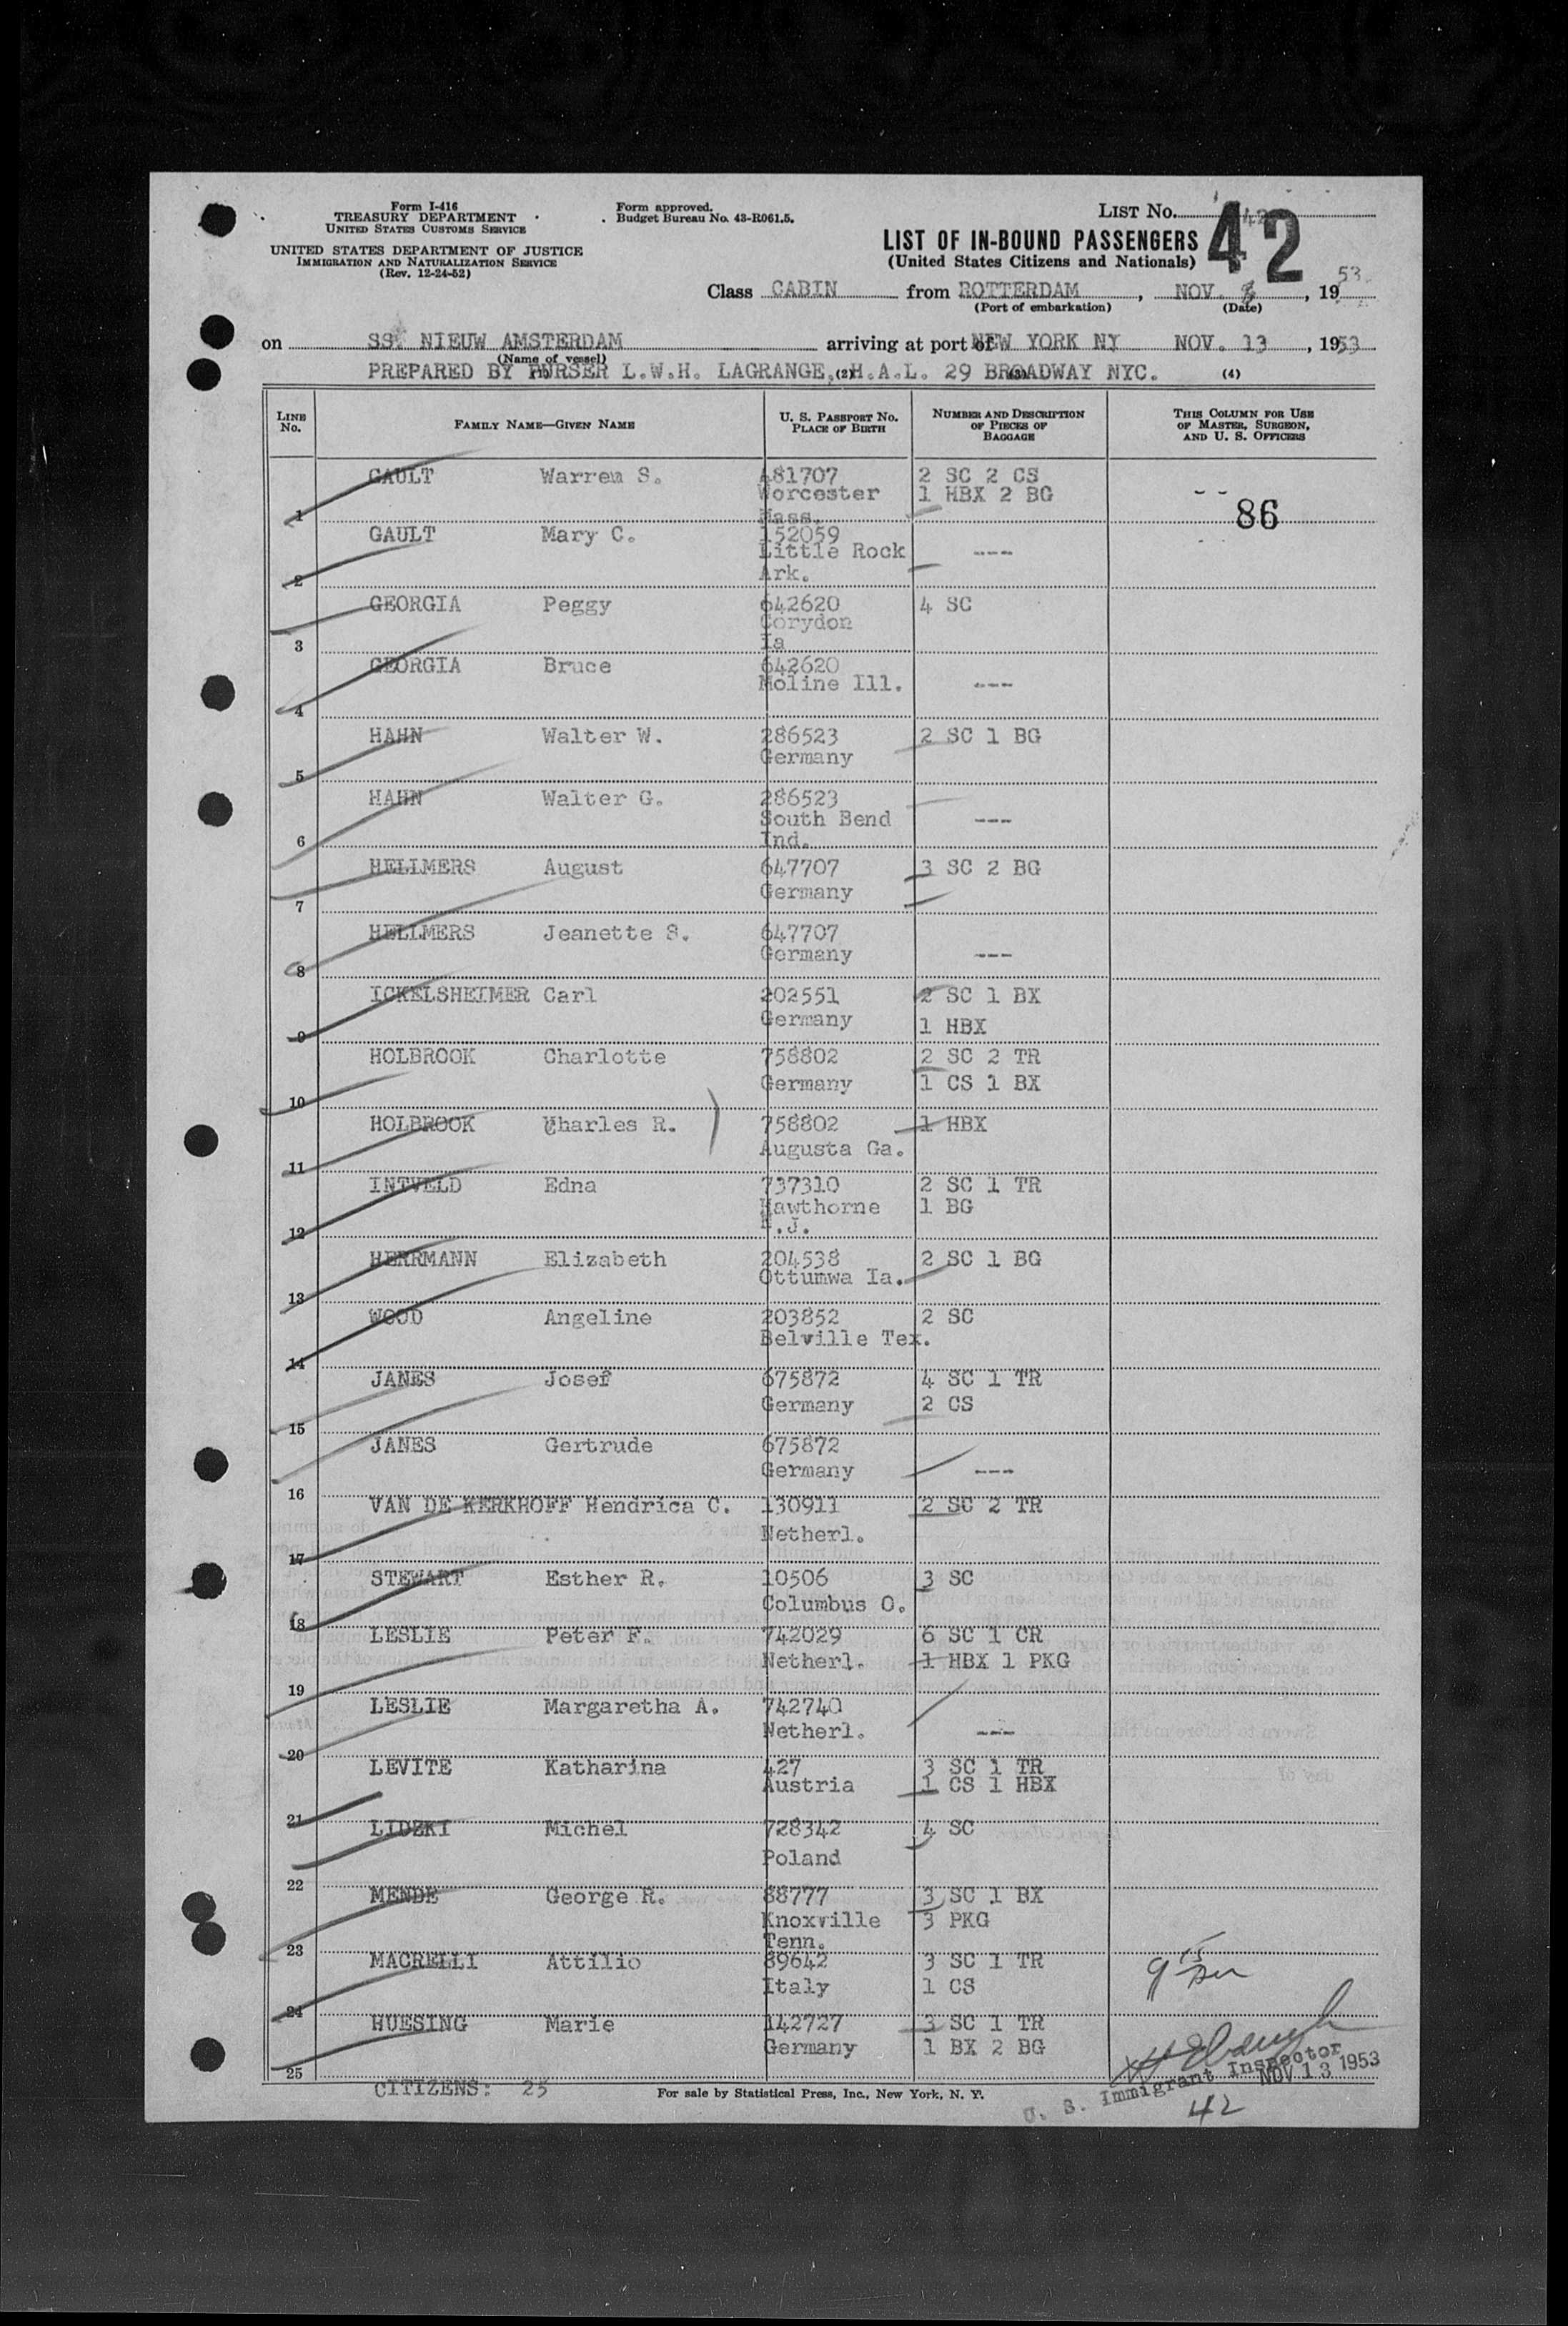 Form I-416
TREASURY DEPARTMENT
UNITED STATES CUSTOMS SERVICE
UNITED STATES DEPARTMENT OF JUSTICE
IMMIGRATION AND NATURALIZATION SERVICE
(Rev. 12-24-52)
Form approved.
Budget Bureau No. 43-R061.5.
LIST No. 42
42
LIST OF IN-BOUND PASSENGERS
(United States Citizens and Nationals)
Class CABIN from ROTTERDAM, NOV. , 1953
(Port of embarkation) (Date)
on SS. NIEUW AMSTERDAM arriving at port of NEW YORK NY NOV. 13, 1953
(Name of vessel)
PREPARED BY PURSER L.W.H. LAGRANGE, H.A.L. 29 BROADWAY NYC.
(2) (4)
LINE No. FAMILY NAME—GIVEN NAME U. S. PASSPORT No. PLACE OF BIRTH NUMBER AND DESCRIPTION OF PIECES OF BAGGAGE THIS COLUMN FOR USE OF MASTER, SURGEON, AND U. S. OFFICERS
GAULT Warren S. 481707 2 SC 2 CS
Worcester 1 HBX 2 BG
1 Mass. 86
GAULT Mary C. 152059
Little Rock ---
2 Ark.
GEORGIA Peggy 642620 4 SC
Corydon
3 Ia
GEORGIA Bruce 642620
Moline Ill. ---
4
HAHN Walter W. 286523 2 SC 1 BG
5 Germany
HAHN Walter G. 286523
South Bend ---
6 Ind.
HELLMERS August 647707 3 SC 2 BG
Germany
7
HELLMERS Jeanette S. 647707
Germany ---
8
ICKELSHEIMER Carl 202551 2 SC 1 BX
Germany 1 HBX
9
HOLBROOK Charlotte 758802 2 SC 2 TR
Germany 1 CS 1 BX
10
HOLBROOK Charles R. 758802 1 HBX
Augusta Ga.
11
INTVELD Edna 737310 2 SC 1 TR
Hawthorne 1 BG
12 N.J.
HERRMANN Elizabeth 204538 2 SC 1 BG
Ottumwa Ia.
13
WOOD Angeline 203852 2 SC
Belville Tex.
14
JANES Josef 675872 4 SC 1 TR
Germany 2 CS
15
JANES Gertrude 675872
Germany ---
16
VAN DE KERKHOFF Hendrica C. 130911 2 SC 2 TR
Netherl.
17
STEWART Esther R. 10506 3 SC
Columbus O.
18
LESLIE Peter F. 742029 6 SC 1 CR
Netherl. 1 HBX 1 PKG
19
LESLIE Margaretha A. 742740
Netherl. ---
20
LEVITE Katharina 427 3 SC 1 TR
Austria 1 CS 1 HBX
21
LIDZKI Michel 728342 4 SC
Poland
22
MENDE George R. 88777 3 SC 1 BX
Knoxville 3 PKG
23 Tenn.
MACRELLI Attilio 89642 3 SC 1 TR
Italy 1 CS
24
HUESING Marie 142727 3 SC 1 TR
Germany 1 BX 2 BG
25
CITIZENS: 25
For sale by Statistical Press, Inc., New York, N. Y.
U. S. Immigrant Inspector
NOV 13 1953
42